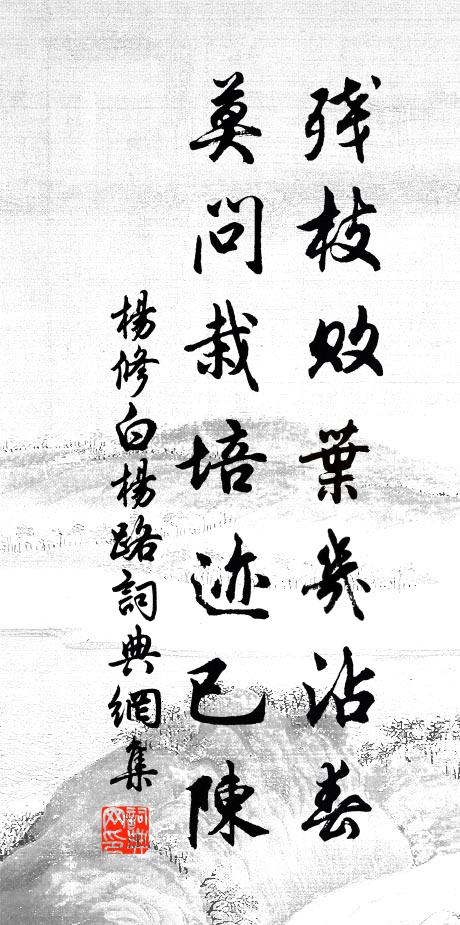 残枝败葉幾沾春
莫問栽培迹已陳
楊修白楊路詞典網集